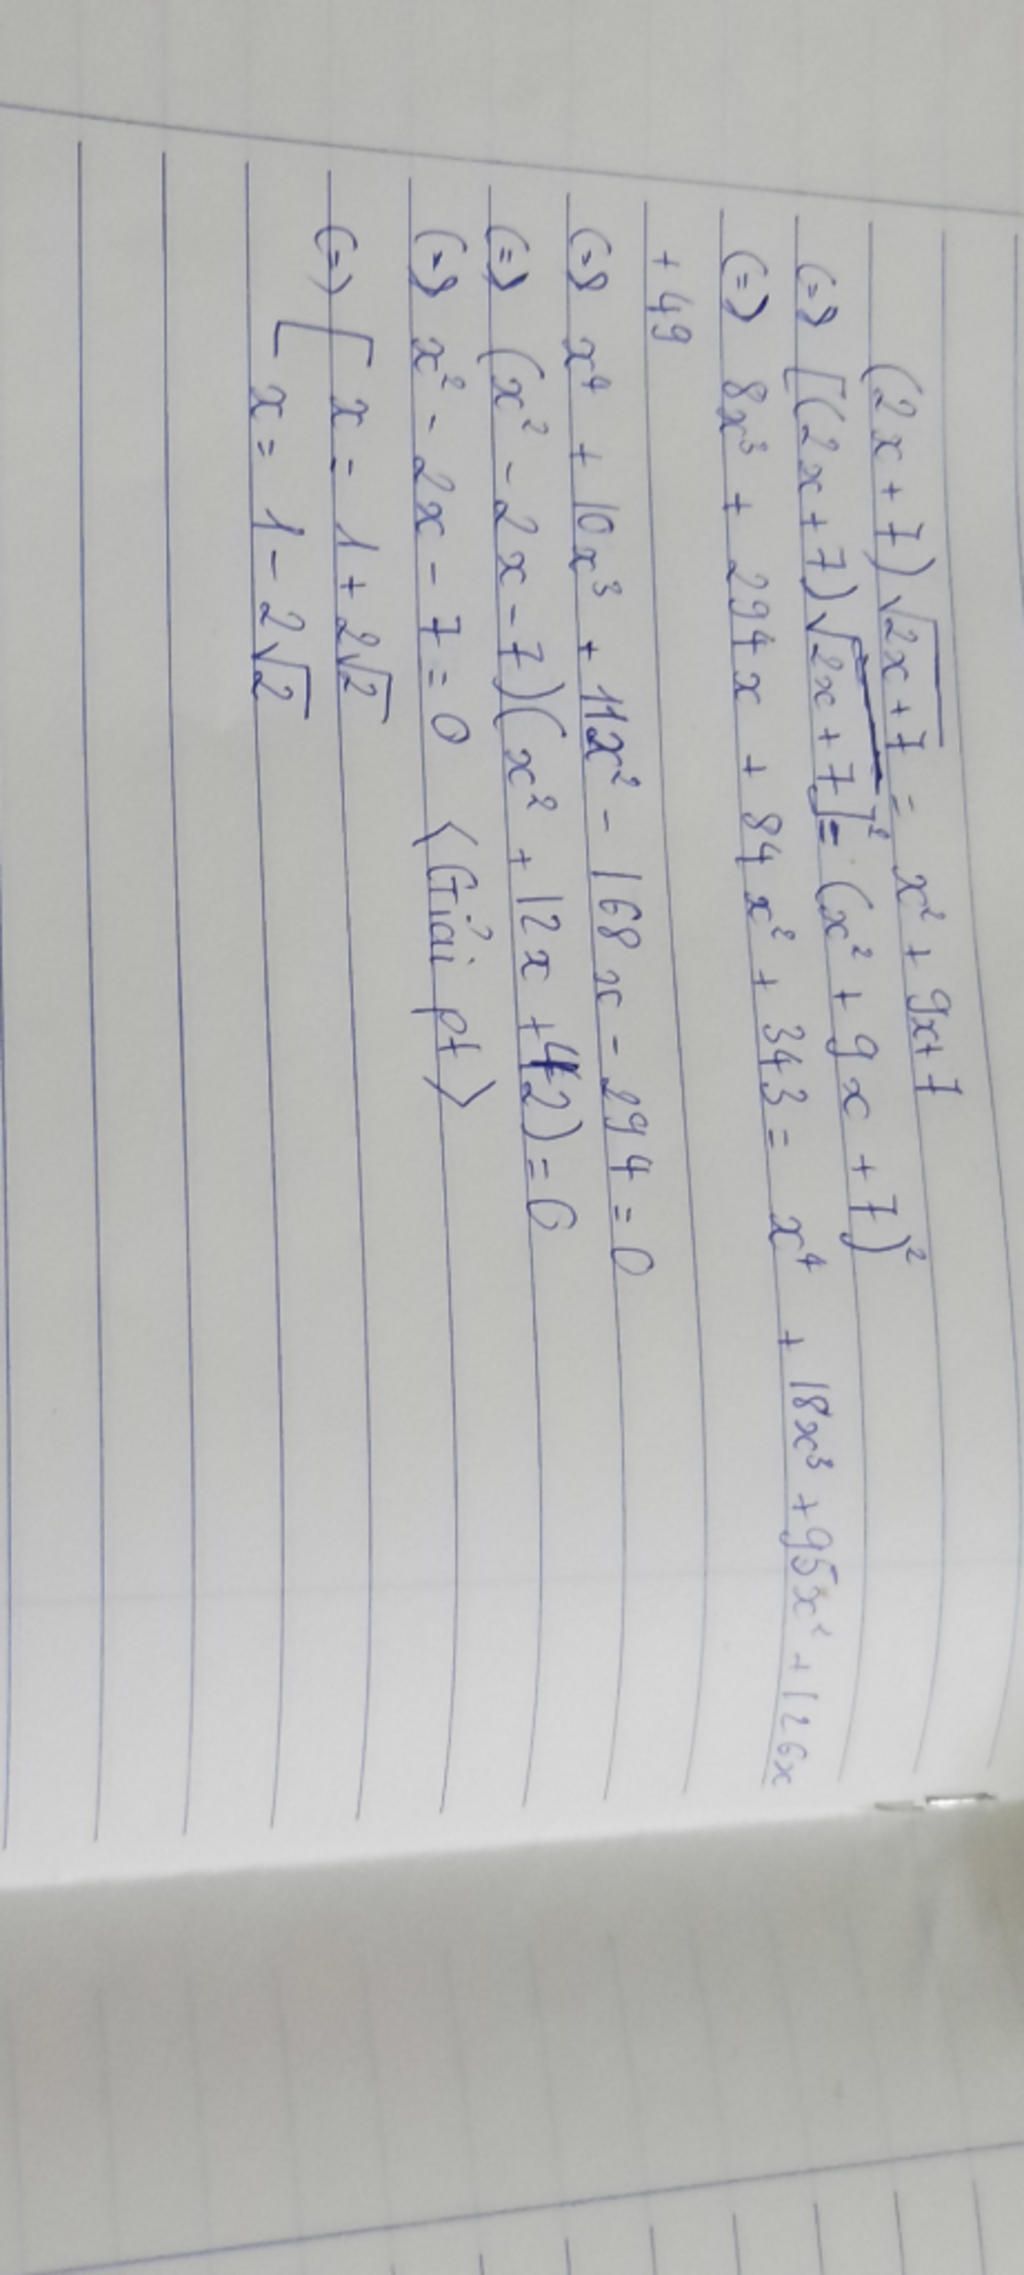 (2x + 7)√2x+7 = x² + 9x+7
(=) [(2x+7)√2x+7]² = (x² + 9x + 7)²
(=) 8x³ + 294x + 84x² + 343 = x⁴ + 18x³ + 95x² + 126x
+ 49
(=) x⁴ + 10x³ + 11x² - 168x - 294 = 0
(=) (x² - 2x - 7)(x² + 12x + 42) = 0
(=) x² - 2x - 7 = 0 <Giải pt>
(=) [ x = 1 + 2√2
[ x = 1 - 2√2